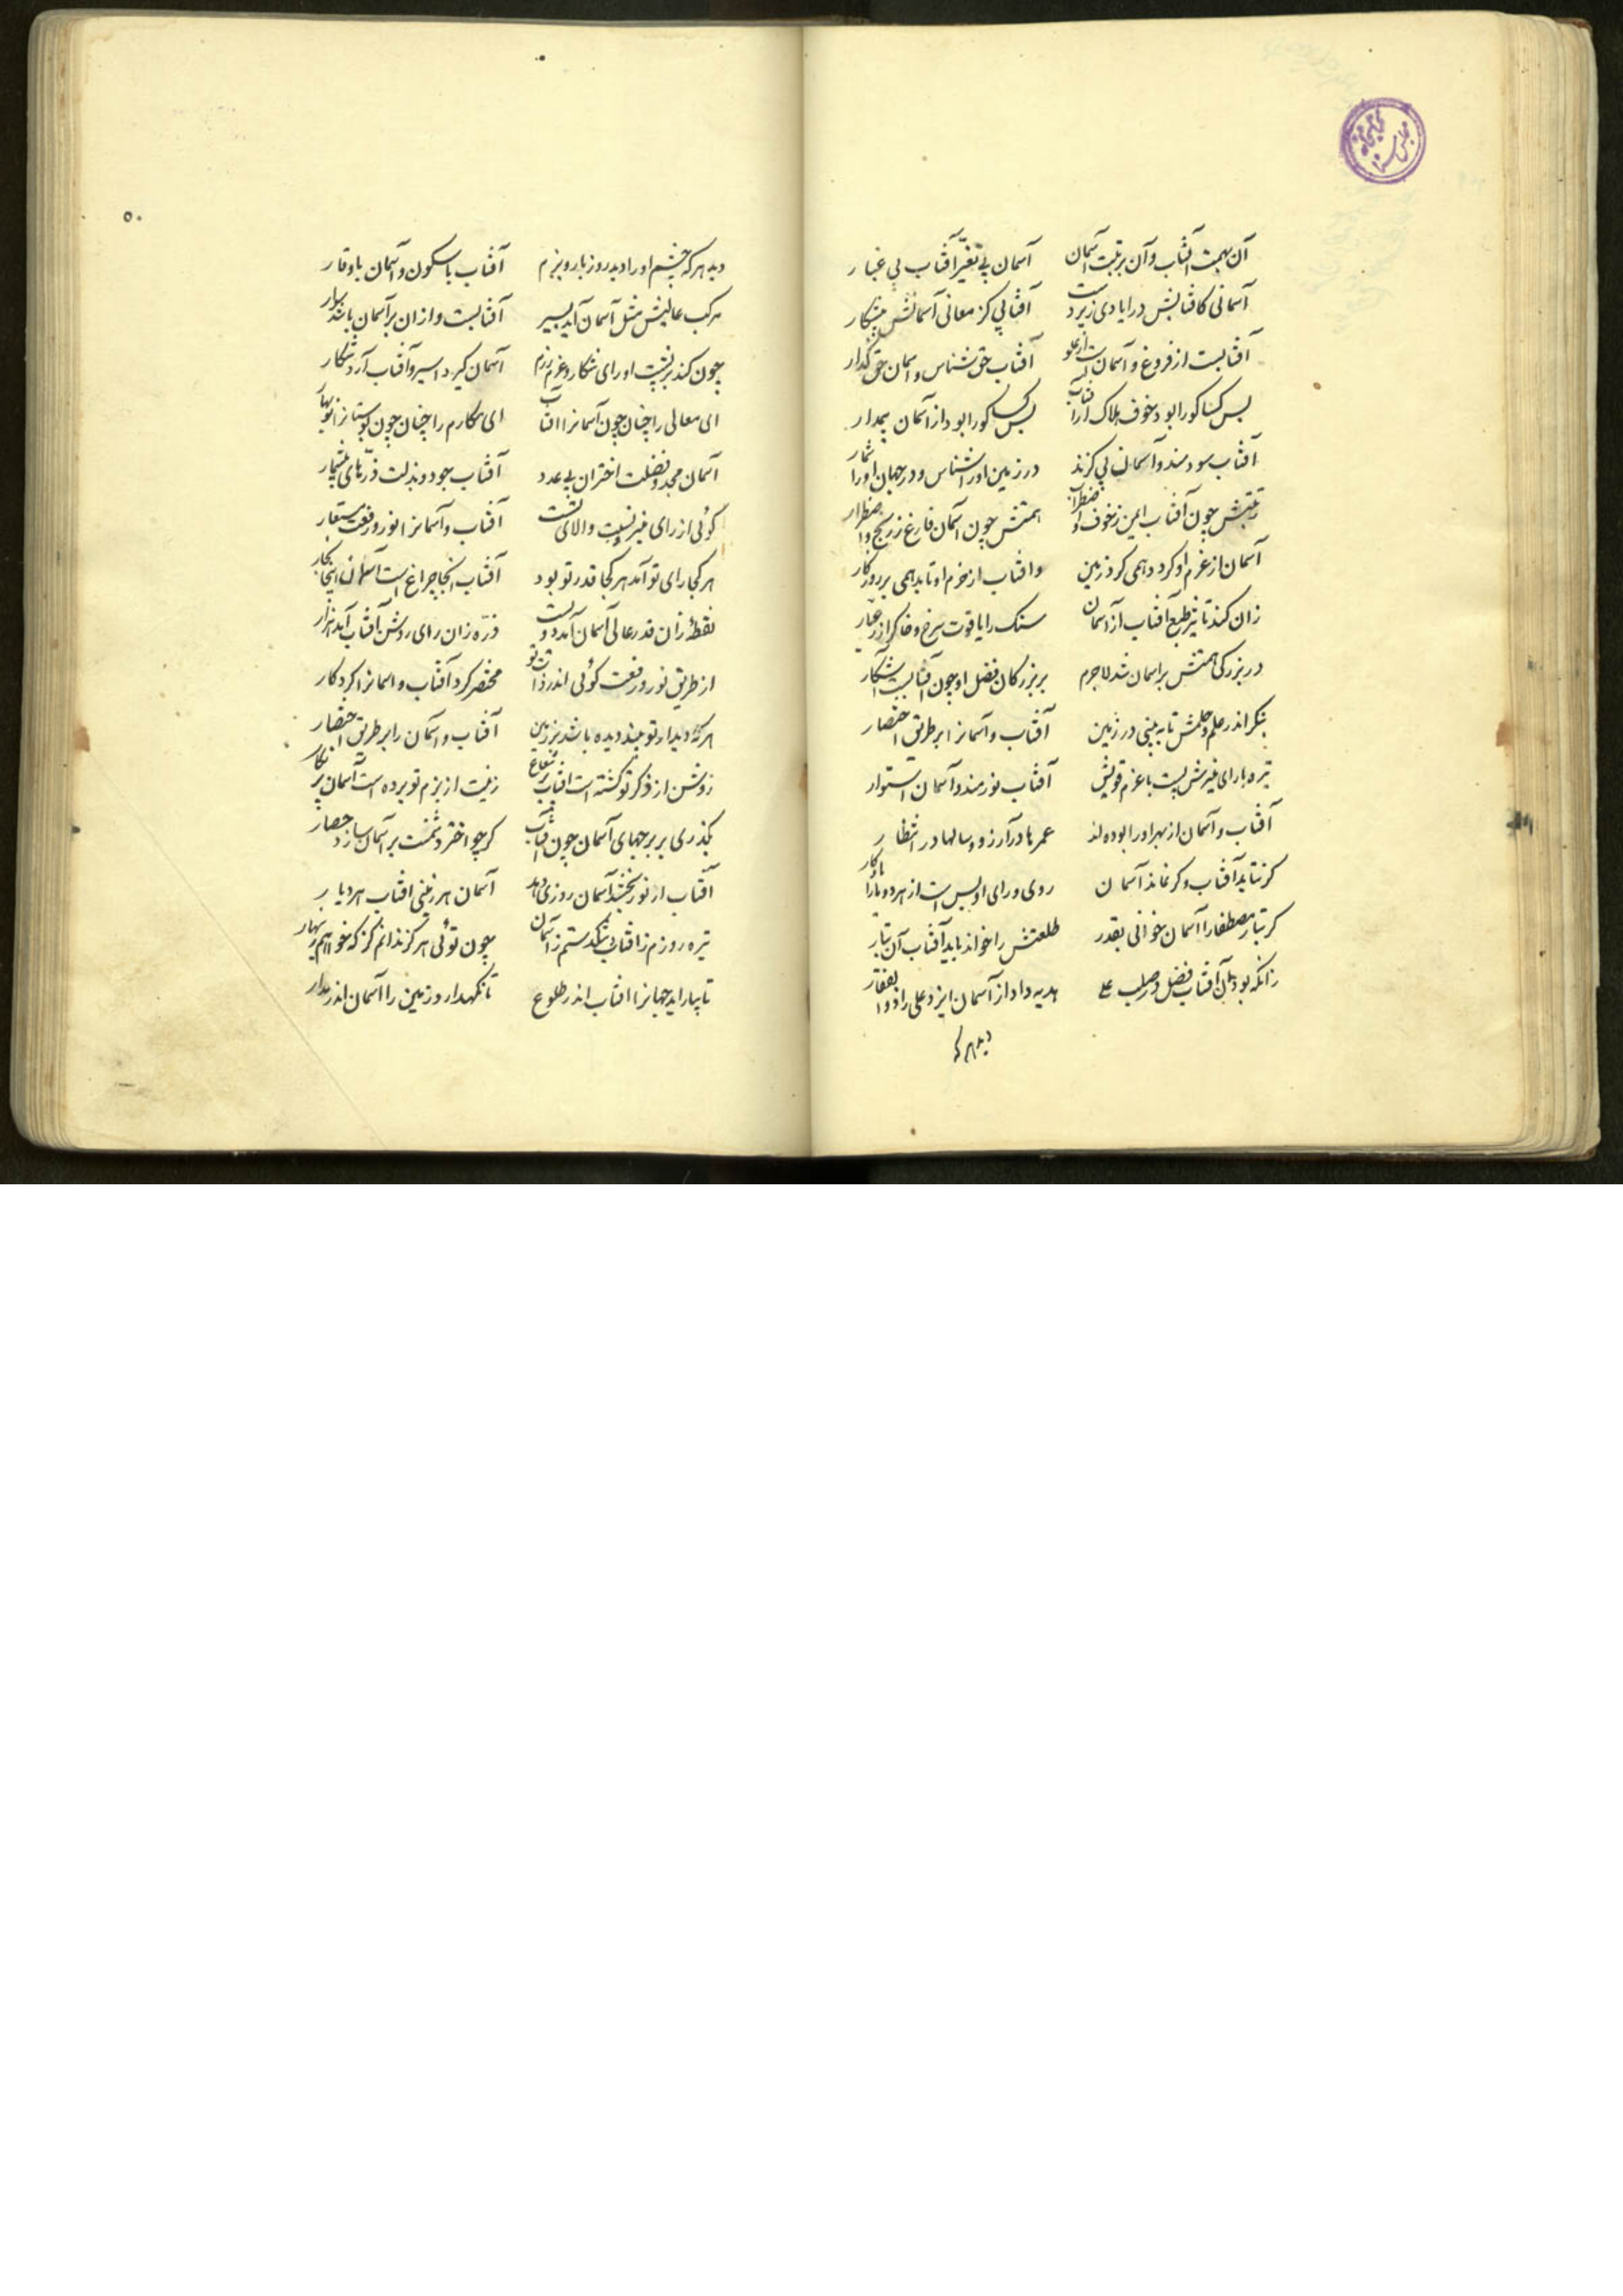 آن بهمت آفتاب و آن برتبت آسمان آسمان بی تغیر آفتاب بی غبار
آسمانی کافتابش در ایادی زیردست آفتابی کز معانی آسمانش پیشکار
آفتابست از فروغ و آسمانست از علو آفتاب حق شناس و اسمان حق گذار
بس کسا کورا بود خوف هلاک از آفتاب بس کسا کورا بود از آسمان بیم
آفتاب سودمند و آسمان بی کزند در زمین او را شناس و در جهان او را شمار
رتبتش چون آفتاب ایمن ز خوف و اضطراب همتش چون آسمان فارغ ز رنج و اضطرار
آسمان از عزم او کردد همی کرد زمین وافتاب از حزم او تابد همی بر روزکار
زان کند تاثیر طبع آفتاب از آسمان سنک را یاقوت سرخ و خاک را زر عیار
در بزرکی همتش بر اسمان شد لاجرم بر بزرکان فضل او چون آفتابست آشکار
بنکر اندر علم و حلمش تا به بینی در زمین آفتاب و آسمانرا بر طریق اختصار
تیره با رای منیرش پست با عزم قویش آفتاب نورمند و آسمان استوار
آفتاب و آسمان از بهر او را بوده‌اند عمرها در آرزو و سالها در انتظار
کر نتابد آفتاب و کر نماند آسمان روی و رای او بس است از هر دو ما را یادکار
کر تبار مصطفا را آسمان خوانی بقدر طلعتش را خواند باید آفتاب آن تبار
زانکه بود آن آفتاب فضل در صلب علی هدیه داد از آسمان ایزد علی را ذوالفقار
دید هر که
۵۰
دید هر که چشم او را دید روز بار و بزم آفتاب با سکون و آسمان باوقار
مرکب عالیش مثل آسمان آید بسیر آفتابست و ازان بر آسمان باشد سوار
چون کند بر پشت او رای شکار و عزم رزم آسمان کیرد اسیر و آفتاب آرد شکار
ای معالی را چنان چون آسمانرا افتاب ای مکارم را چنان چون بوستانرا نوبهار
آسمان مجد و فضلت اختران بی عدد آفتاب جود و بذلت ذرّهای بیشمار
کوئی از رای منیر تست و والای تست آفتاب و آسمانرا نور و رفعت مستعار
هر کجا رای تو آمد هر کجا قدر تو بود آفتاب آنجا چراغ است آسمان اینجا بخار
نقطهٔ زان قدر عالی آسمان آمد دویست ذرّه زان رای روشن آفتاب آید هزار
از طریق نور و رفعت کوئی اندر ذات تو مختصر کرد آفتاب و اسمانرا کردکار
هر که دیدار تو بیند دیده باشد بر زمین آفتاب و آسمان را بر طریق اختصار
روشن از ذکر تو کشته است افتاب پر شعاع زینت از بزم تو برده است آسمان پر نکار
بکذری بر برجهای آسمان چون آفتاب کر چو اختر دشمنت بر آسمان سازد حصار
آفتاب ار نور بخشد آسمان روزی دهد آسمان هر زمینی افتاب هر دیار
تیره روزم ز افتاب و تنکدستم ز آسمان چون توئی هرکز ندانم کز که خواهم زینهار
تا بیاراید جهانرا افتاب اندر طلوع تا نکهدارد زمین را آسمان اندر مدار